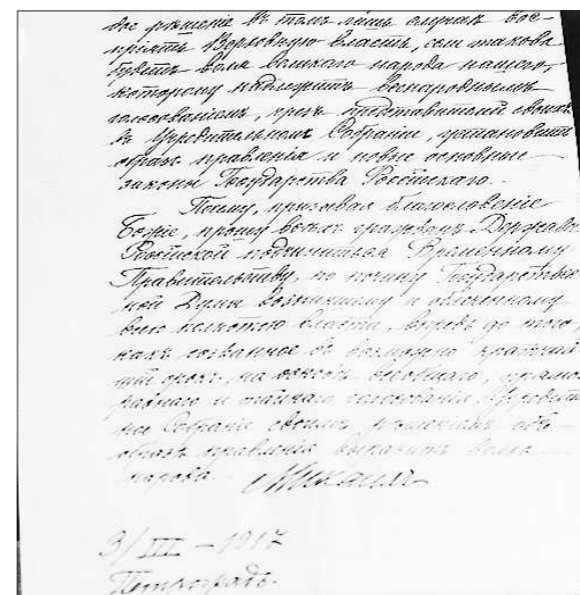 дое рѣшеніе въ томъ лишь случаѣ вос-
пріять Верховную власть, если такова
будетъ воля великаго народа нашего,
которому надлежитъ всенароднымъ
голосованіемъ, чрезъ представителей своихъ
въ Учредительномъ Собраніи, установить
образъ правленія и новые основные
законы Государства Россійскаго.
Посему, призывая благословеніе
Божіе, прошу всѣхъ гражданъ Державы
Россійской подчиниться Временному
Правительству, по почину Государствен
ной Думы возникшему и облеченному
всею полнотою власти, впредь до того
какъ созванное въ возможно кратчай
шій срокъ, на основѣ всеобщаго, прямого
равнаго и тайнаго голосованія, Учредитель
ное Собраніе своимъ рѣшеніемъ объ
образѣ правленія выразитъ волю
народа.- Михаилъ
3/III - 1917
Петроградъ.